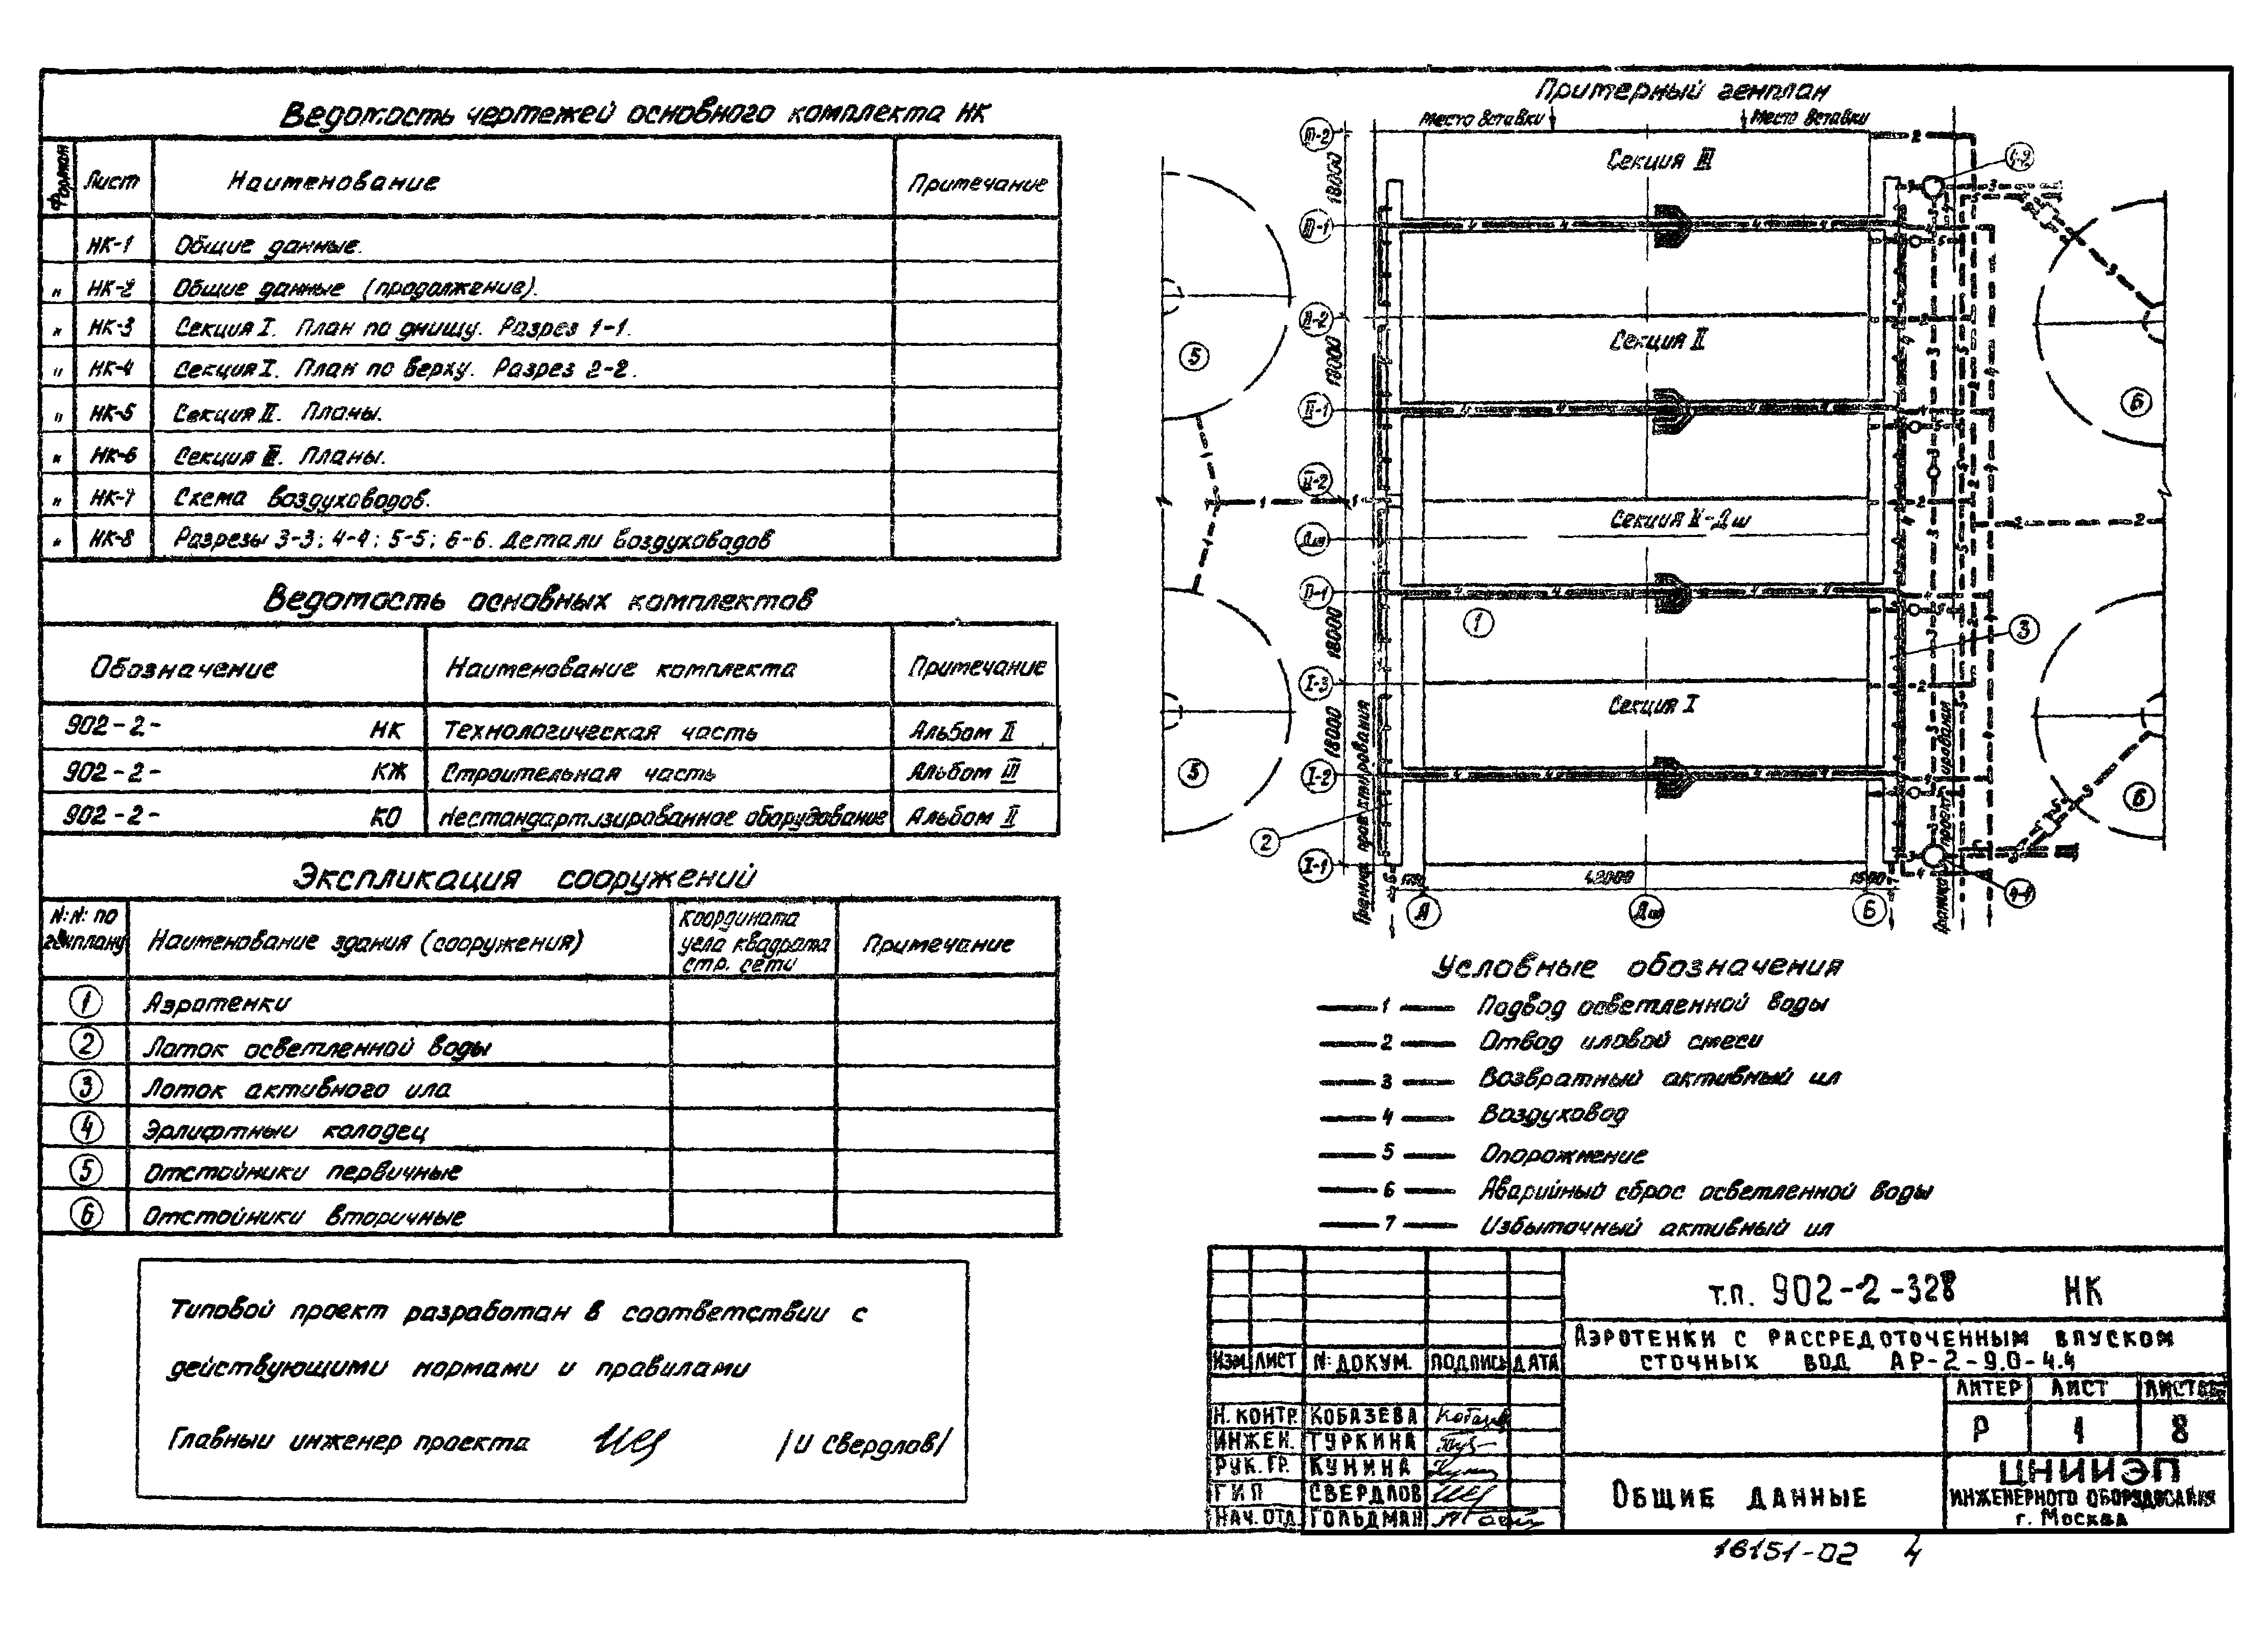 Ведомость чертежей основного комплекта НК
Формат Лист Наименование Примечание
НК-1 Общие данные.
" НК-2 Общие данные (продолжение).
" НК-3 Секция I. План по днищу. Разрез 1-1.
" НК-4 Секция I. План по верху. Разрез 2-2.
" НК-5 Секция II. Планы.
" НК-6 Секция III. Планы.
" НК-7 Схема воздуховодов.
" НК-8 Разрезы 3-3; 4-4; 5-5; 6-6. Детали воздуховодов
Ведомость основных комплектов
Обозначение Наименование комплекта Примечание
902-2- НК Технологическая часть Альбом II
902-2- КЖ Строительная часть Альбом III
902-2- КО Нестандартизированное оборудование Альбом II
Экспликация сооружений
N:N: по генплану Наименование здания (сооружения) Координата угла квадрата стр. сети Примечание
1 Аэротенки
2 Лоток осветленной воды
3 Лоток активного ила
4 Эрлифтный колодец
5 Отстойники первичные
6 Отстойники вторичные
Типовой проект разработан в соответствии с
действующими нормами и правилами
Главный инженер проекта /И Свердлов/
Примерный генплан
Место вставки Место вставки
III-2
Секция III
4-2
18000
III-1
Секция II
18000
II-1
5
6
II-2
Секция II-Дш
Дш
II-1
1
3
18000
I-3
Секция I
18000
I-2
5
6
2
I-1
Граница проектирования
Граница проектирования
42000
1500
4-1
А Дш Б
Условные обозначения
1 Подвод осветленной воды
2 Отвод иловой смеси
3 Возвратный активный ил
4 Воздуховод
5 Опорожнение
6 Аварийный сброс осветленной воды
7 Избыточный активный ил
т.п. 902-2-328 НК
Аэротенки с рассредоточенным впуском
сточных вод АР-2-9.0-4.4
Изм. Лист N: докум. Подпись Дата
Литер Лист Листов
Р 1 8
Н. контр. Кобазева
Инжен. Туркина
Рук. гр. Кунина
ГИП Свердлов
Нач. отд. Гольдман
Общие данные
ЦНИИЭП
инженерного оборудования
г. Москва
16151-02 4